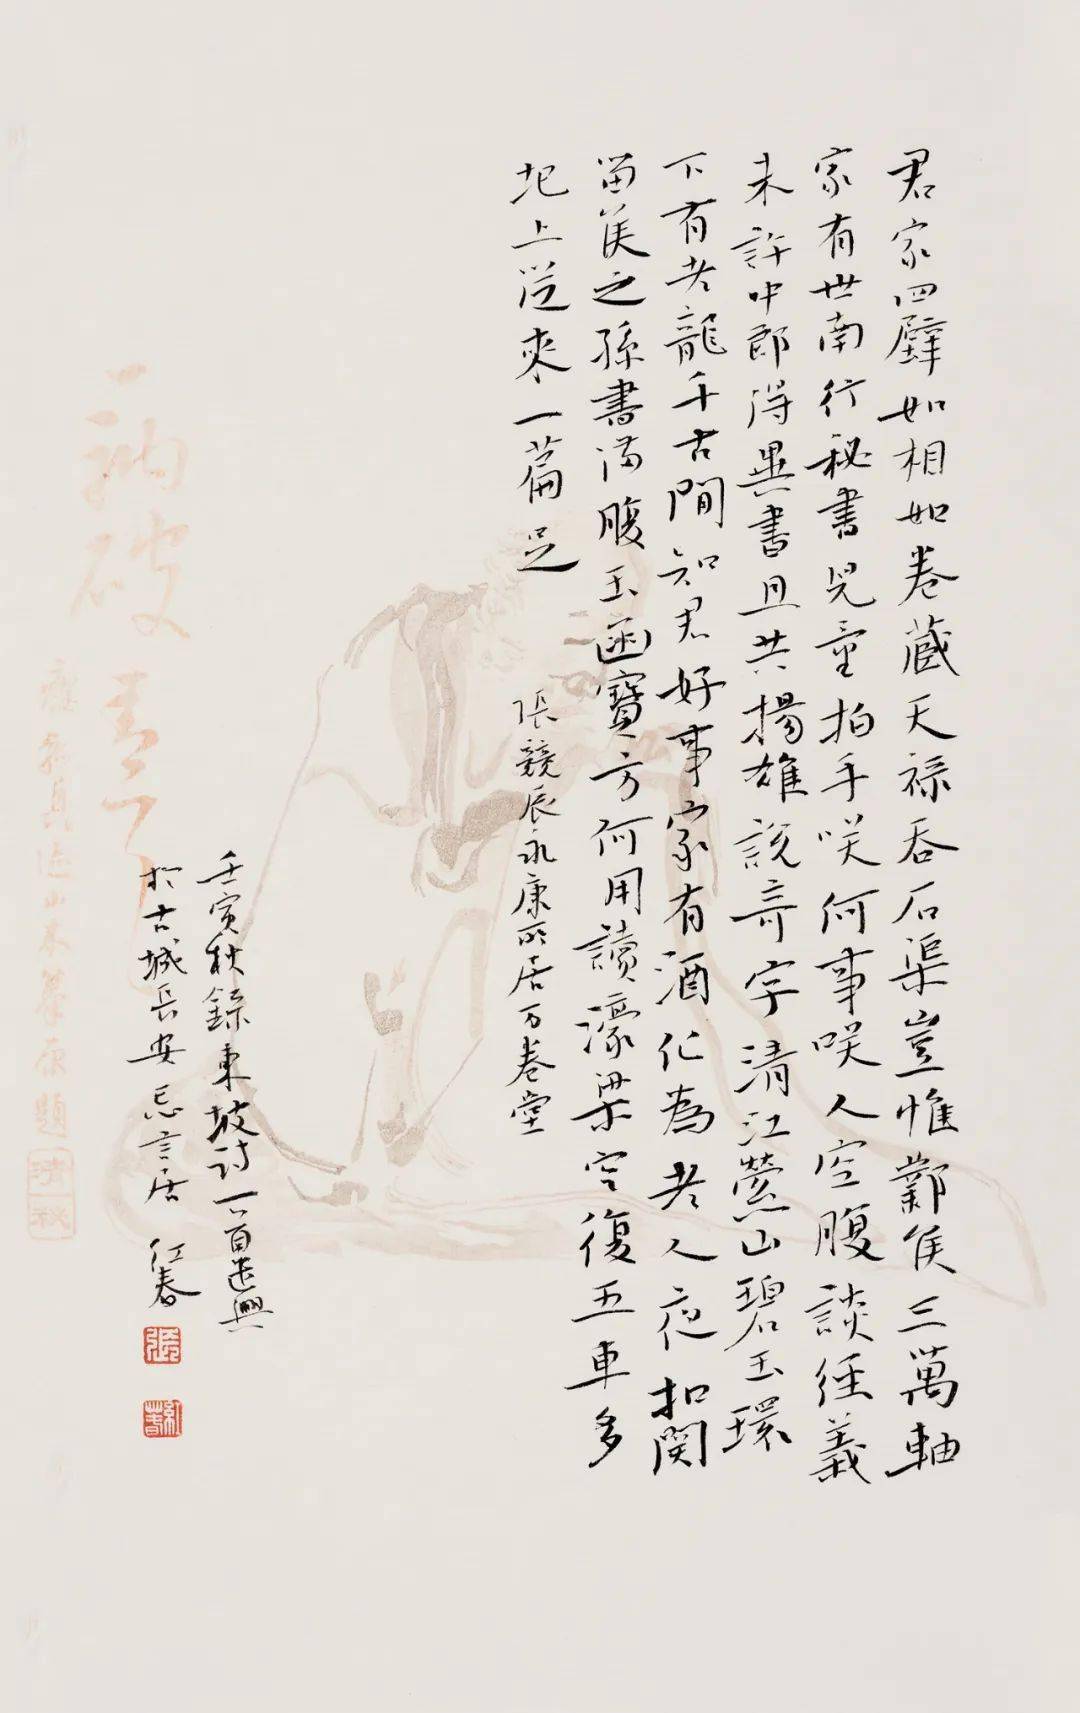 君家四壁如相如卷藏天禄吞石渠豈惟鄴侯三萬軸
家有世南行秘書兒童拍手咲何事咲人空腹談经義
未許中郎得異書且共揚雄說奇字清江縈山碧玉環
下有老龍千古閒知君好事家有酒化為老人夜扣関
留侯之孫書満腹玉函寶方何用讀濠梁空復五車多
圯上從来一篇足
張競辰永康所居万卷堂
壬寅秋録東坡詩一百遣興
於古城長安忘言居 红春
衲破
題
清秋
張